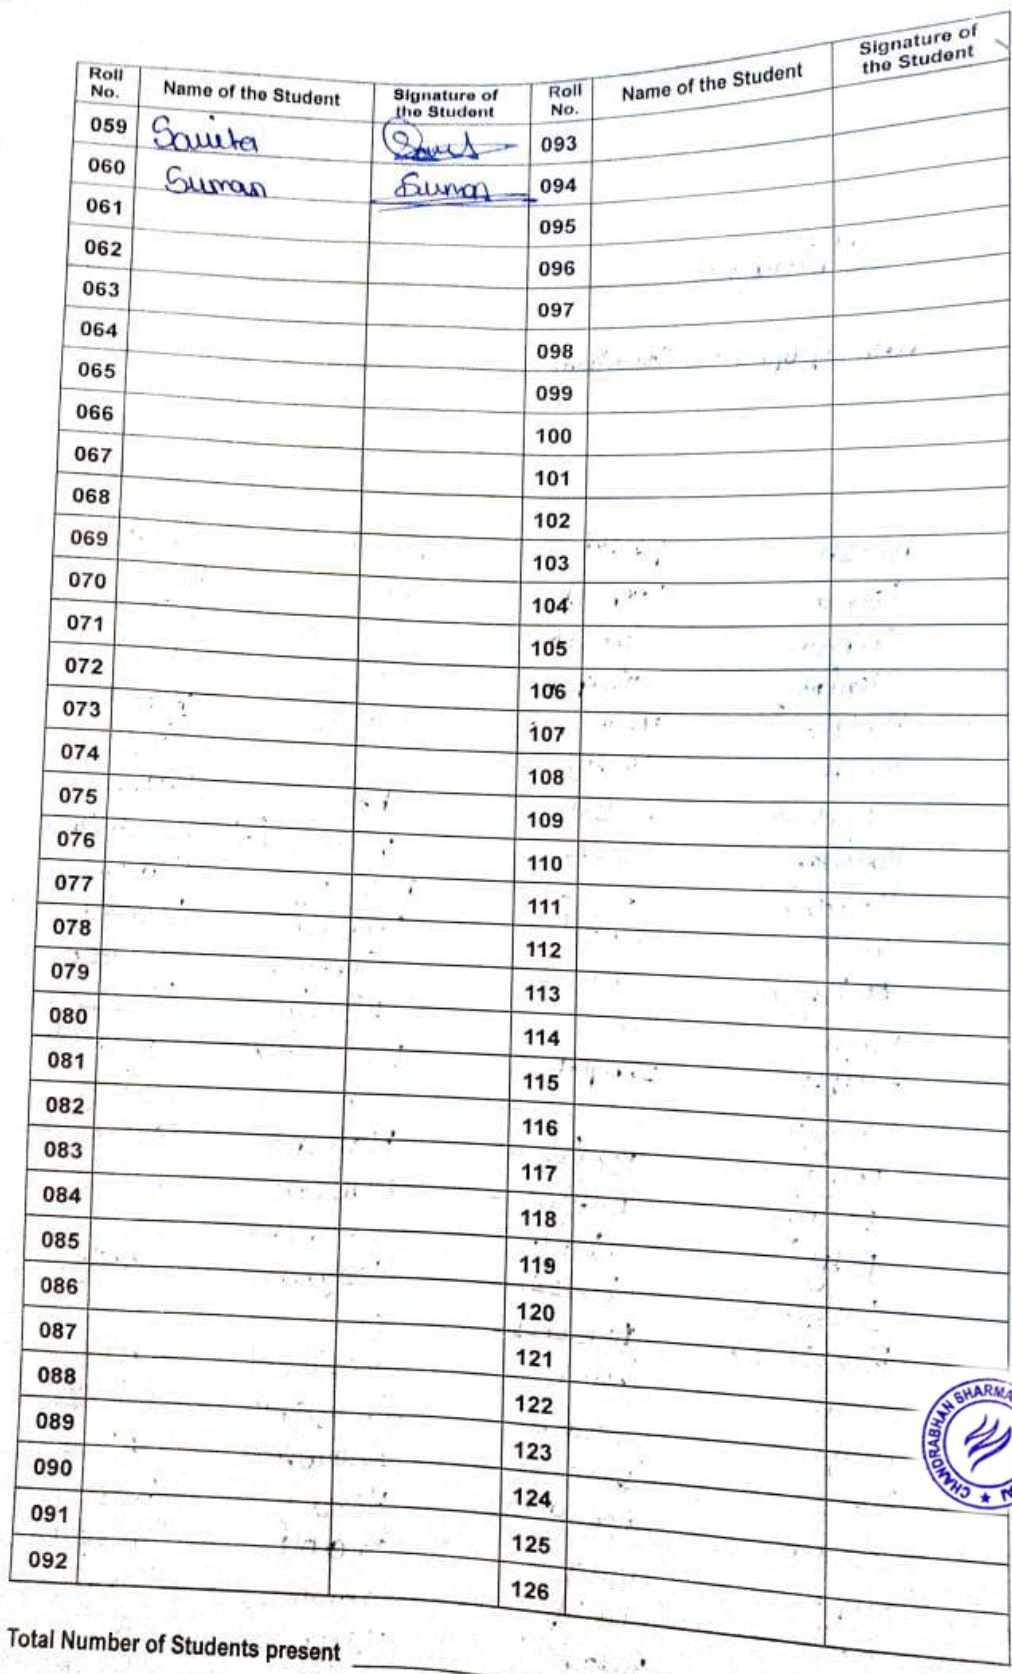 Roll No. Name of the Student Signature of the Student Roll No. Name of the Student Signature of the Student
059 Savita 093
060 Suman Suman 094
061 095
062 096
063 097
064 098
065 099
066 100
067 101
068 102
069 103
070 104
071 105
072 106
073 107
074 108
075 109
076 110
077 111
078 112
079 113
080 114
081 115
082 116
083 117
084 118
085 119
086 120
087 121
088 122
089 123
090 124
091 125
092 126
CHANDRABHAN SHARMA
Total Number of Students present